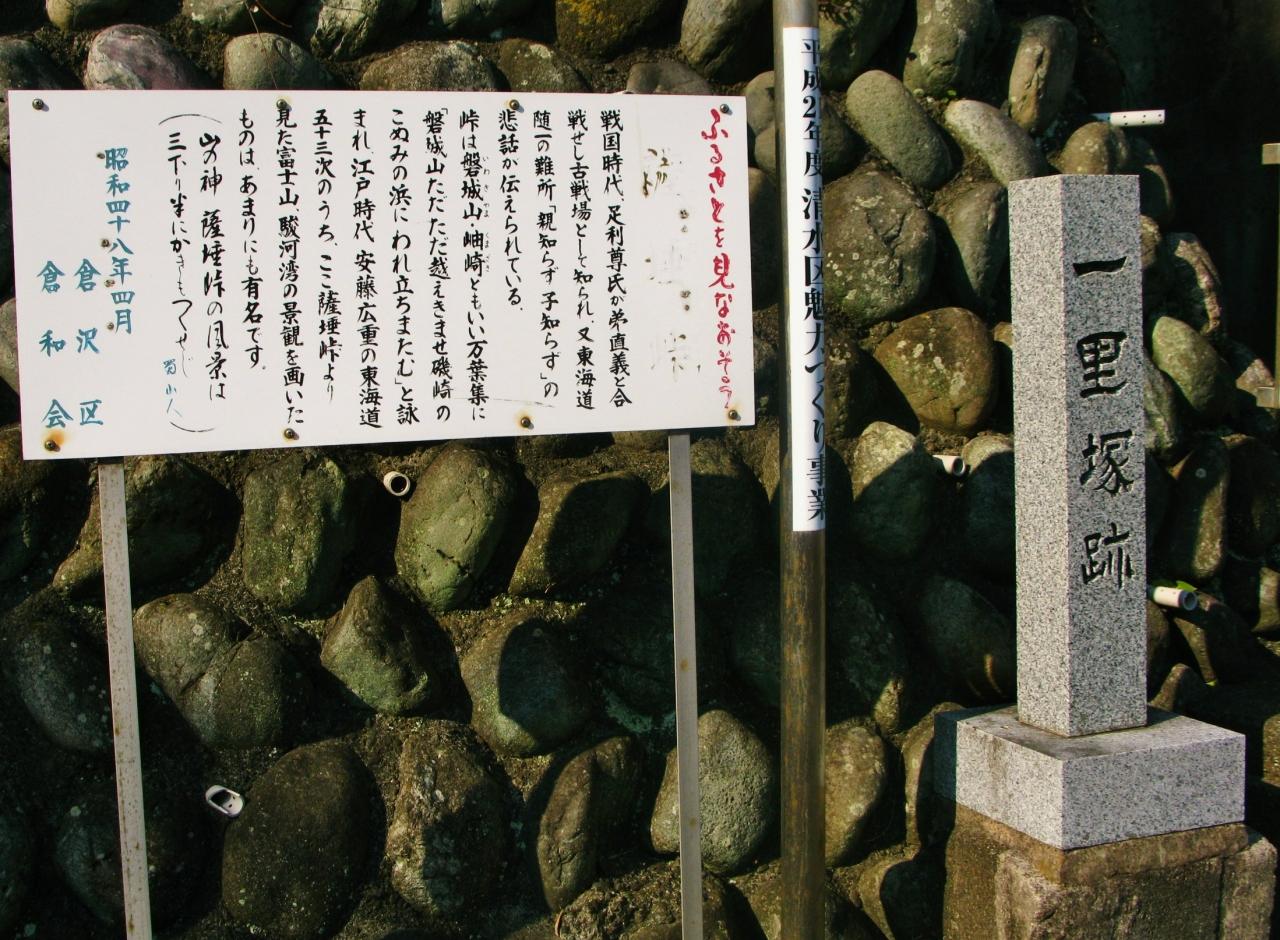 ふるさとを見なおそう
戦国時代、足利尊氏が弟直義と合
戦せし古戦場として知られ、又東海道
随一の難所「親知らず子知らず」の
悲話が伝えられている。
峠は磐城山・岫崎ともいい万葉集に
「磐城山ただただ越えきませ磯崎の
こぬみの浜にわれ立ちまたむ」と詠
まれ、江戸時代 安藤広重の東海道
五十三次のうち、ここ薩埵峠より
見た富士山 駿河湾の景観を画いた
ものは、あまりにも有名です。
山の神 薩埵峠の風景は
三下り半にかきもつくせじ
蜀山人
昭和四十八年四月
倉沢区
倉和会
平成2年度 清水区魅力づくり事業
一里塚跡